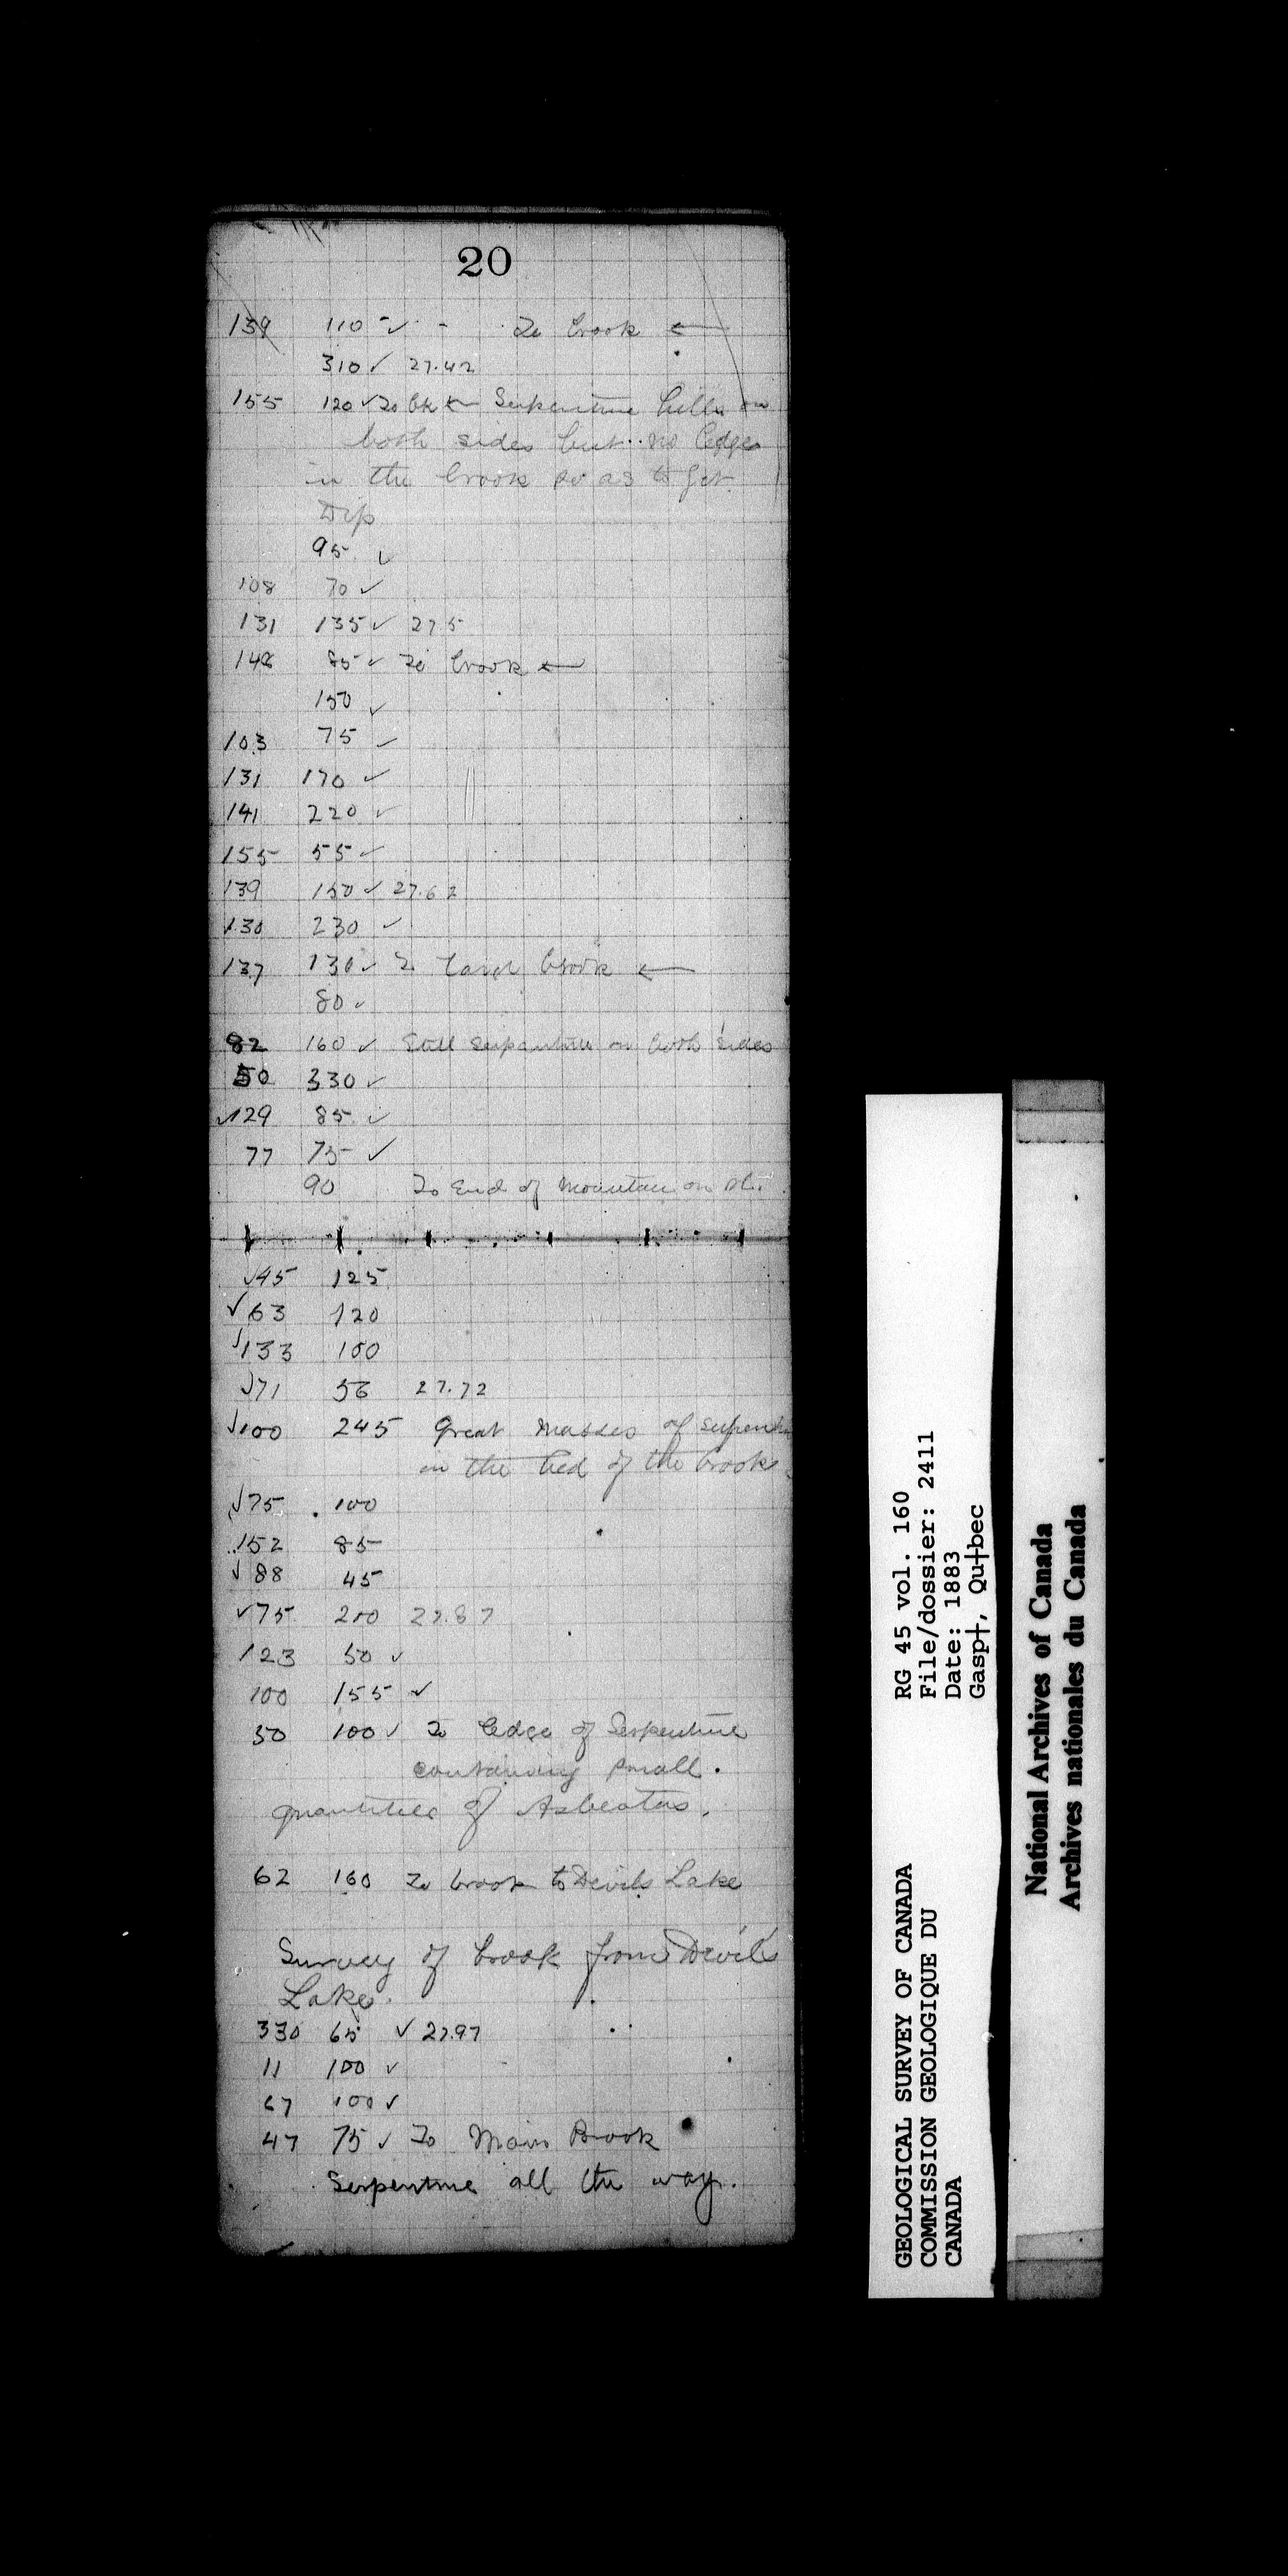 20
139 110 ✓ - To brook ←
310 ✓ 27.42
155 120 ✓ To bk ← Serpentine hills on
both sides but no ledges
in the brook so as to get
Dip
95 ✓
108 70 ✓
131 135 ✓ 27.5
148 85 ✓ To brook ←
150 ✓
103 75 ✓
131 170 ✓
141 220 ✓
155 55 ✓
139 150 ✓ 27.62
130 230 ✓
137 130 ✓ To brook ←
80 ✓
82 160 ✓ Still serpentine on both sides
50 330 ✓
✓129 85 ✓
77 75 ✓
90 To End of Mountain on
✓45 125
✓63 120
✓133 100
✓71 56 27.72
✓100 245 Great masses of
in the bed of the brook
✓75 100
152 85
✓88 45
✓75 200 27.87
123 50 ✓
100 155 ✓
50 100 ✓ To Ledge of Serpentine
containing small
quantities of Asbestos.
62 160 To brook to Devils Lake
Survey of brook from Devil's
Lake.
330 65 ✓ 27.97
11 100 ✓
67 100 ✓
47 75 ✓ To Main Brook
Serpentine all the way.
GEOLOGICAL SURVEY OF CANADA
COMMISSION GEOLOGIQUE DU
CANADA
RG 45 vol. 160
File/dossier: 2411
Date: 1883
Gasp†, Qu†bec
National Archives of Canada
Archives nationales du Canada